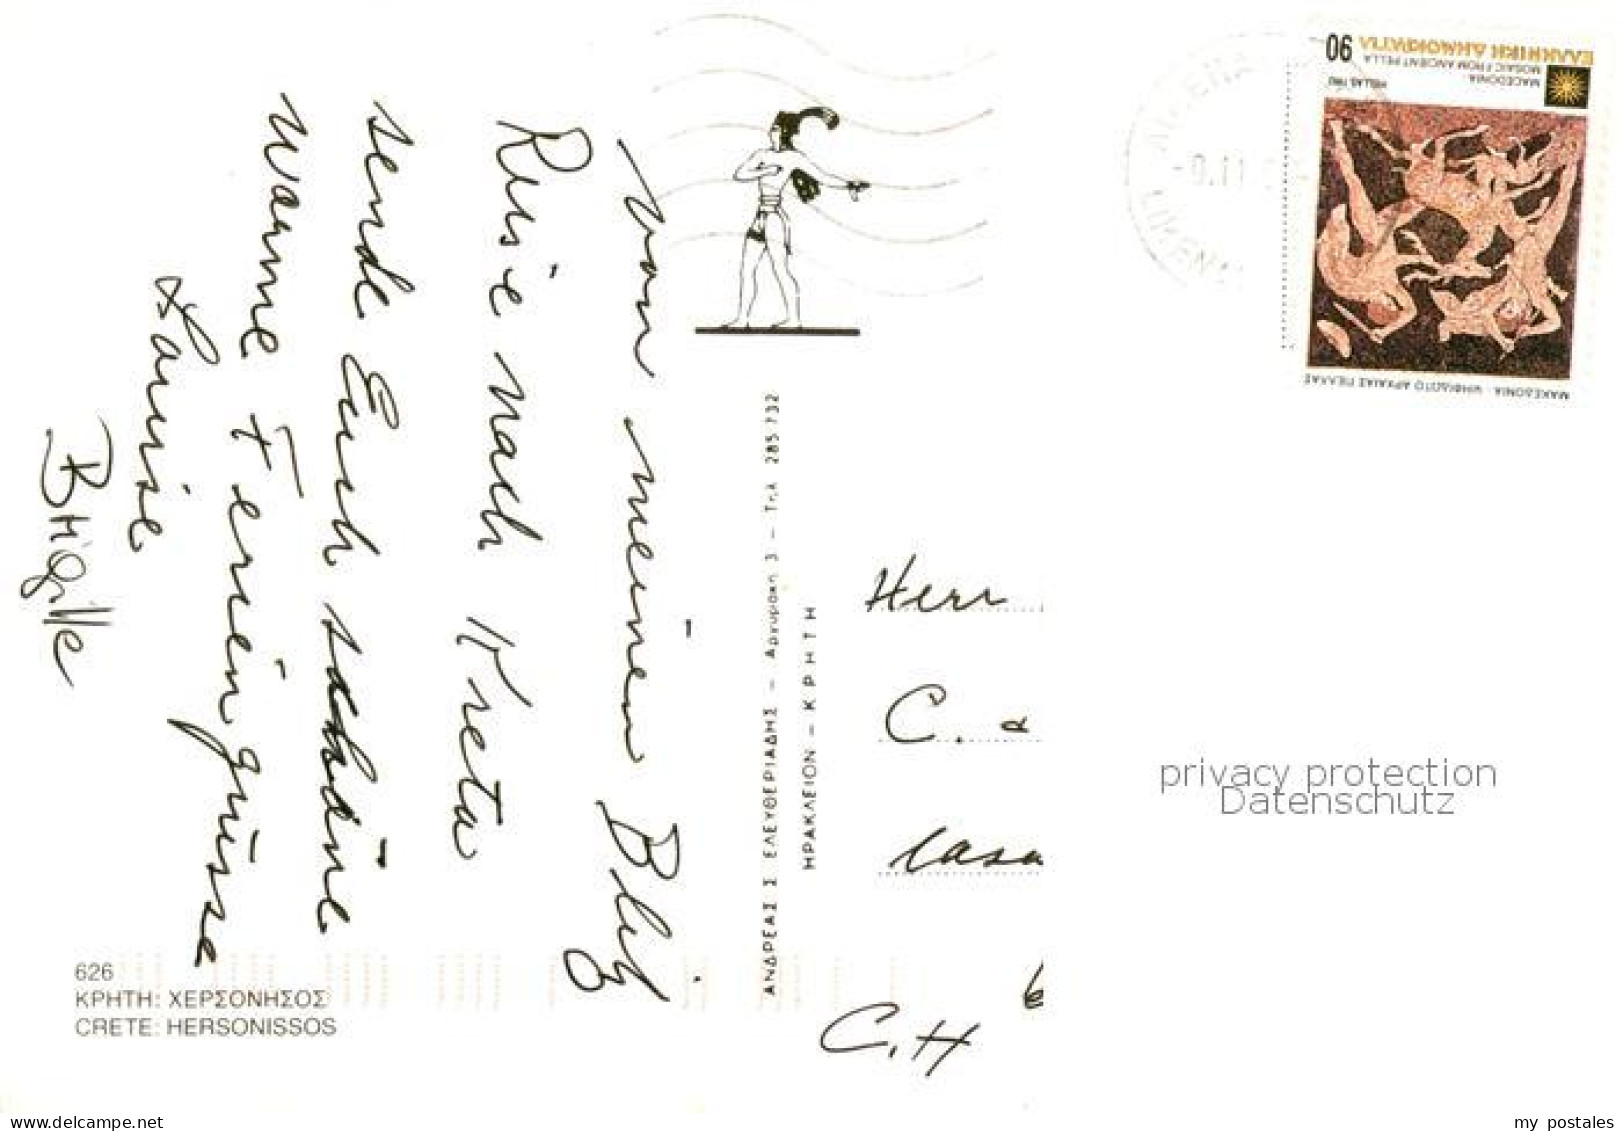 von meiner Blitz
Reise nach Kreta
sende Euch schöne
warme Feriengrüsse
Louise
Brigitte
626
ΚΡΗΤΗ: ΧΕΡΣΟΝΗΣΟΣ
CRETE: HERSONISSOS
ΑΝΔΡΕΑΣ Σ ΕΛΕΥΘΕΡΙΑΔΗΣ – Αργυράκη 3 – Τηλ 285 732
ΗΡΑΚΛΕΙΟΝ – ΚΡΗΤΗ
90
ΕΛΛΗΝΙΚΗ ΔΗΜΟΚΡΑΤΙΑ
MACEDONIA·
MOSAIC FROM ANCIENT PELLA
HELLAS 1992
ΜΑΚΕΔΟΝΙΑ · ΨΗΦΙΔΩΤΟ ΑΡΧΑΙΑΣ ΠΕΛΛΑΣ
Herr
C.
Casa
C.H
privacy protection
Datenschutz
www.delcampe.net
my_postales